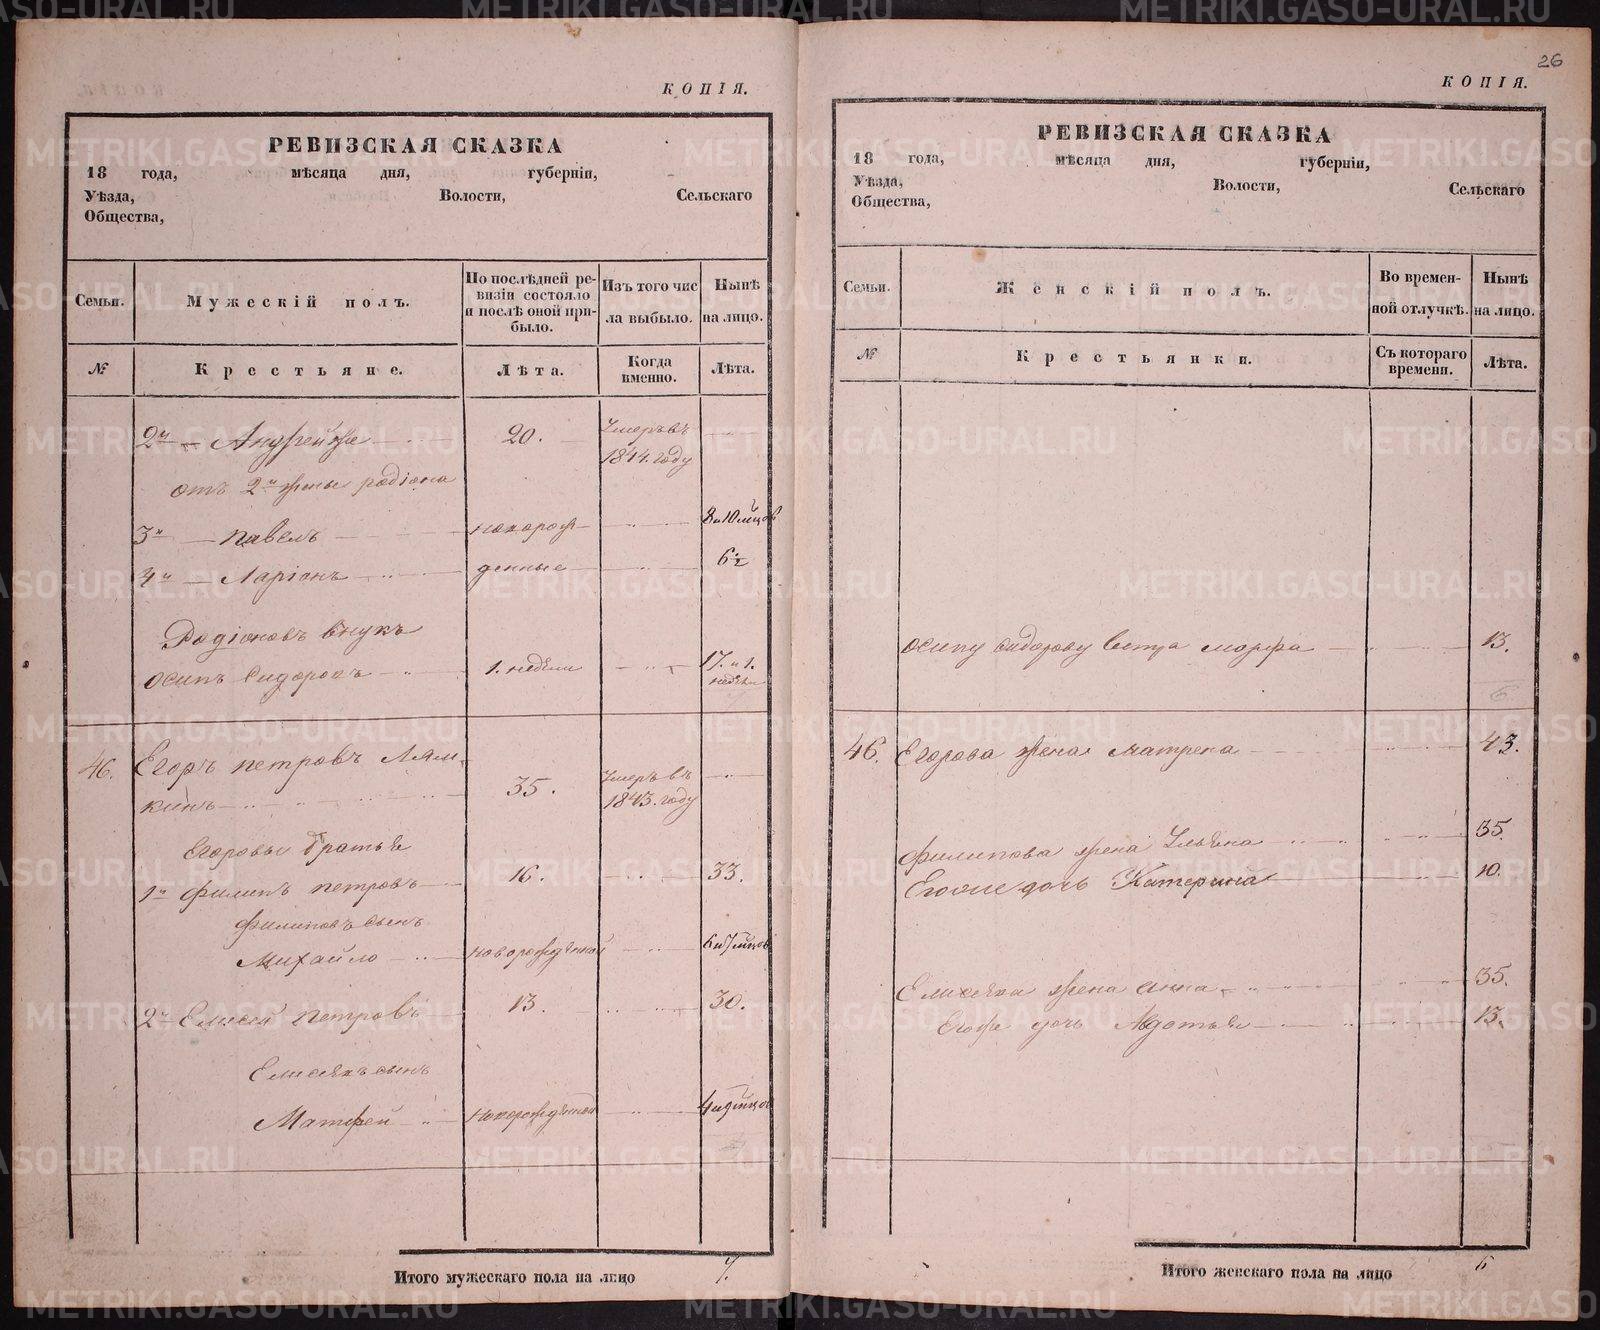 КОПІЯ.
РЕВИЗСКАЯ СКАЗКА
18 года, мѣсяца дня, губерніи,
Уѣзда, Волости, Сельскаго
Общества,
Семьи. Мужескій полъ. По послѣдней ревизіи состояло и послѣ оной прибыло. Изъ того числа выбыло. Нынѣ на лицо.
№ Крестьяне. Лѣта. Когда именно. Лѣта.
2й Андрей же 20. Умеръ въ 1844. году
отъ 2й жены Родіона
3й Павелъ новорож- 8 и 10 мцовъ
4й Ларіонъ денные 6 ½
Родіоновъ внукъ
Осипъ Сидоровъ 1. недели 17. и 1. недели
46. Егоръ Петровъ Лям-
кинъ 35. Умеръ въ 1843. году
Егоровы братья
1й Филипъ Петровъ 16. 33.
Филиповъ сынъ
Михайло новорожденной 6 и 7 мцовъ
2й Елисей Петровъ 13 30.
Елисеяхъ сынъ
Матфей новорожденной 4 и 9 мцов
Итого мужескаго пола на лицо 7.
26
КОПІЯ.
РЕВИЗСКАЯ СКАЗКА
18 года, мѣсяца дня, губерніи,
Уѣзда, Волости, Сельскаго
Общества,
Семьи. Женскій полъ. Во временной отлучкѣ. Нынѣ на лицо.
№ Крестьянки. Съ котораго времени. Лѣта.
Осипу Сидорову сестра Марфа 13.
6
46. Егорова жена Матрена 43.
Филипова жена Ульяна 35.
дочь Катерина 10.
Елисея жена Анна 35.
Егоже дочь Авдотья 13.
Итого женскаго пола на лицо 6
METRIKI.GASO-URAL.RU